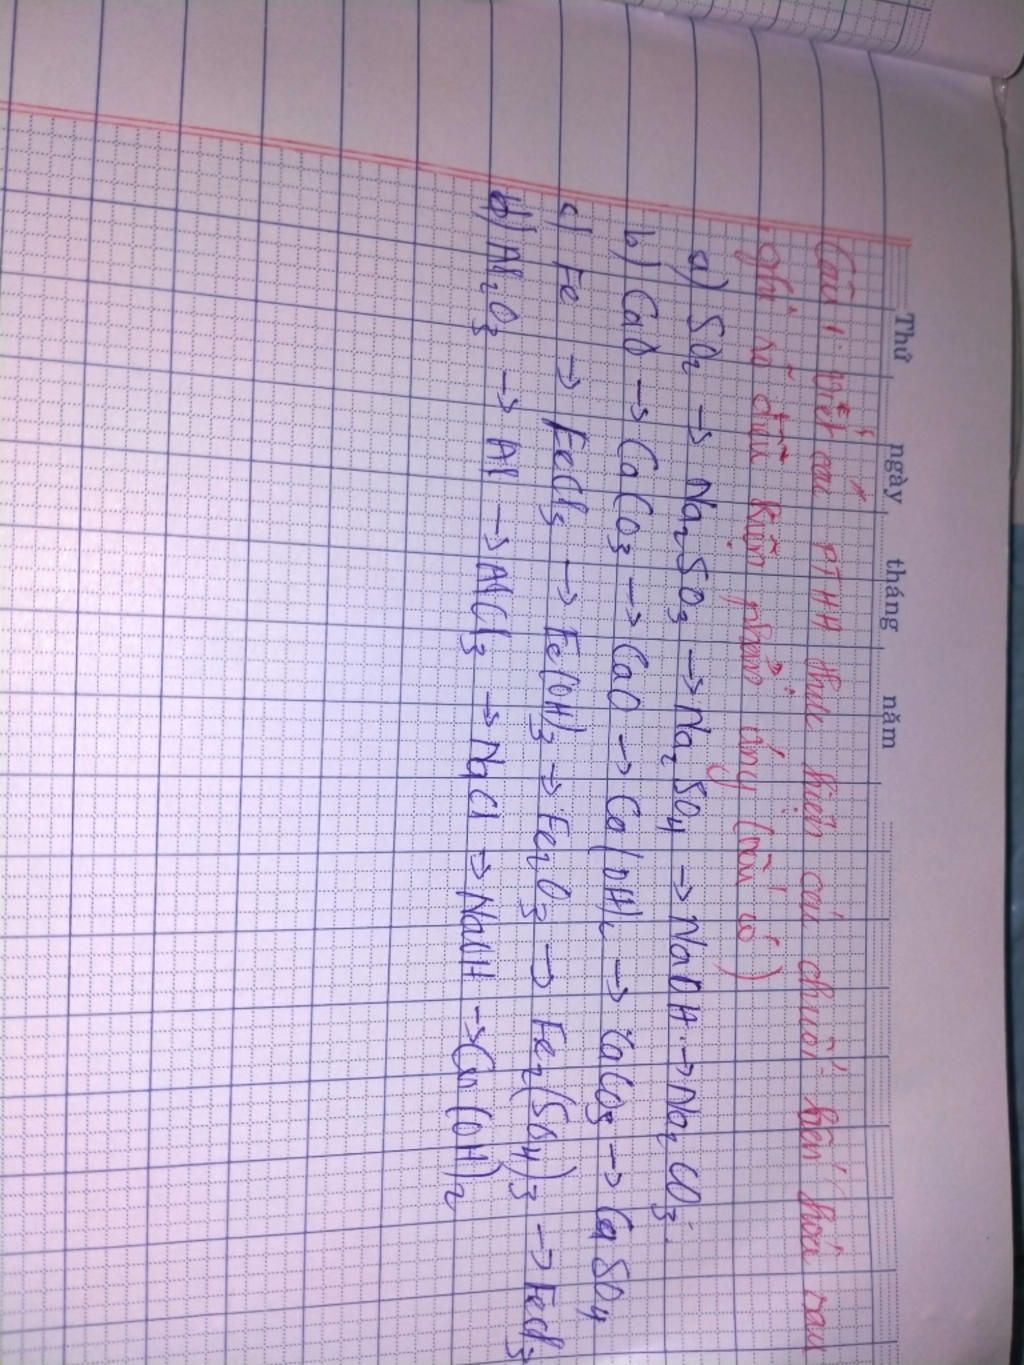 Thứ ngày tháng năm
Câu 1: Viết các PTHH thực hiện các chuỗi biến hoá sau
ghi rõ điều kiện phản ứng (nếu có)
a) SO₂ → Na₂SO₃ → Na₂SO₄ → NaOH → Na₂CO₃.
b) CaO → CaCO₃ → CaO → Ca(OH)₂ → CaCO₃ → CaSO₄
c) Fe → FeCl₃ → Fe(OH)₃ → Fe₂O₃ → Fe₂(SO₄)₃ → FeCl₃
d) Al₂O₃ → Al → AlCl₃ → NaCl → NaOH → Cu(OH)₂